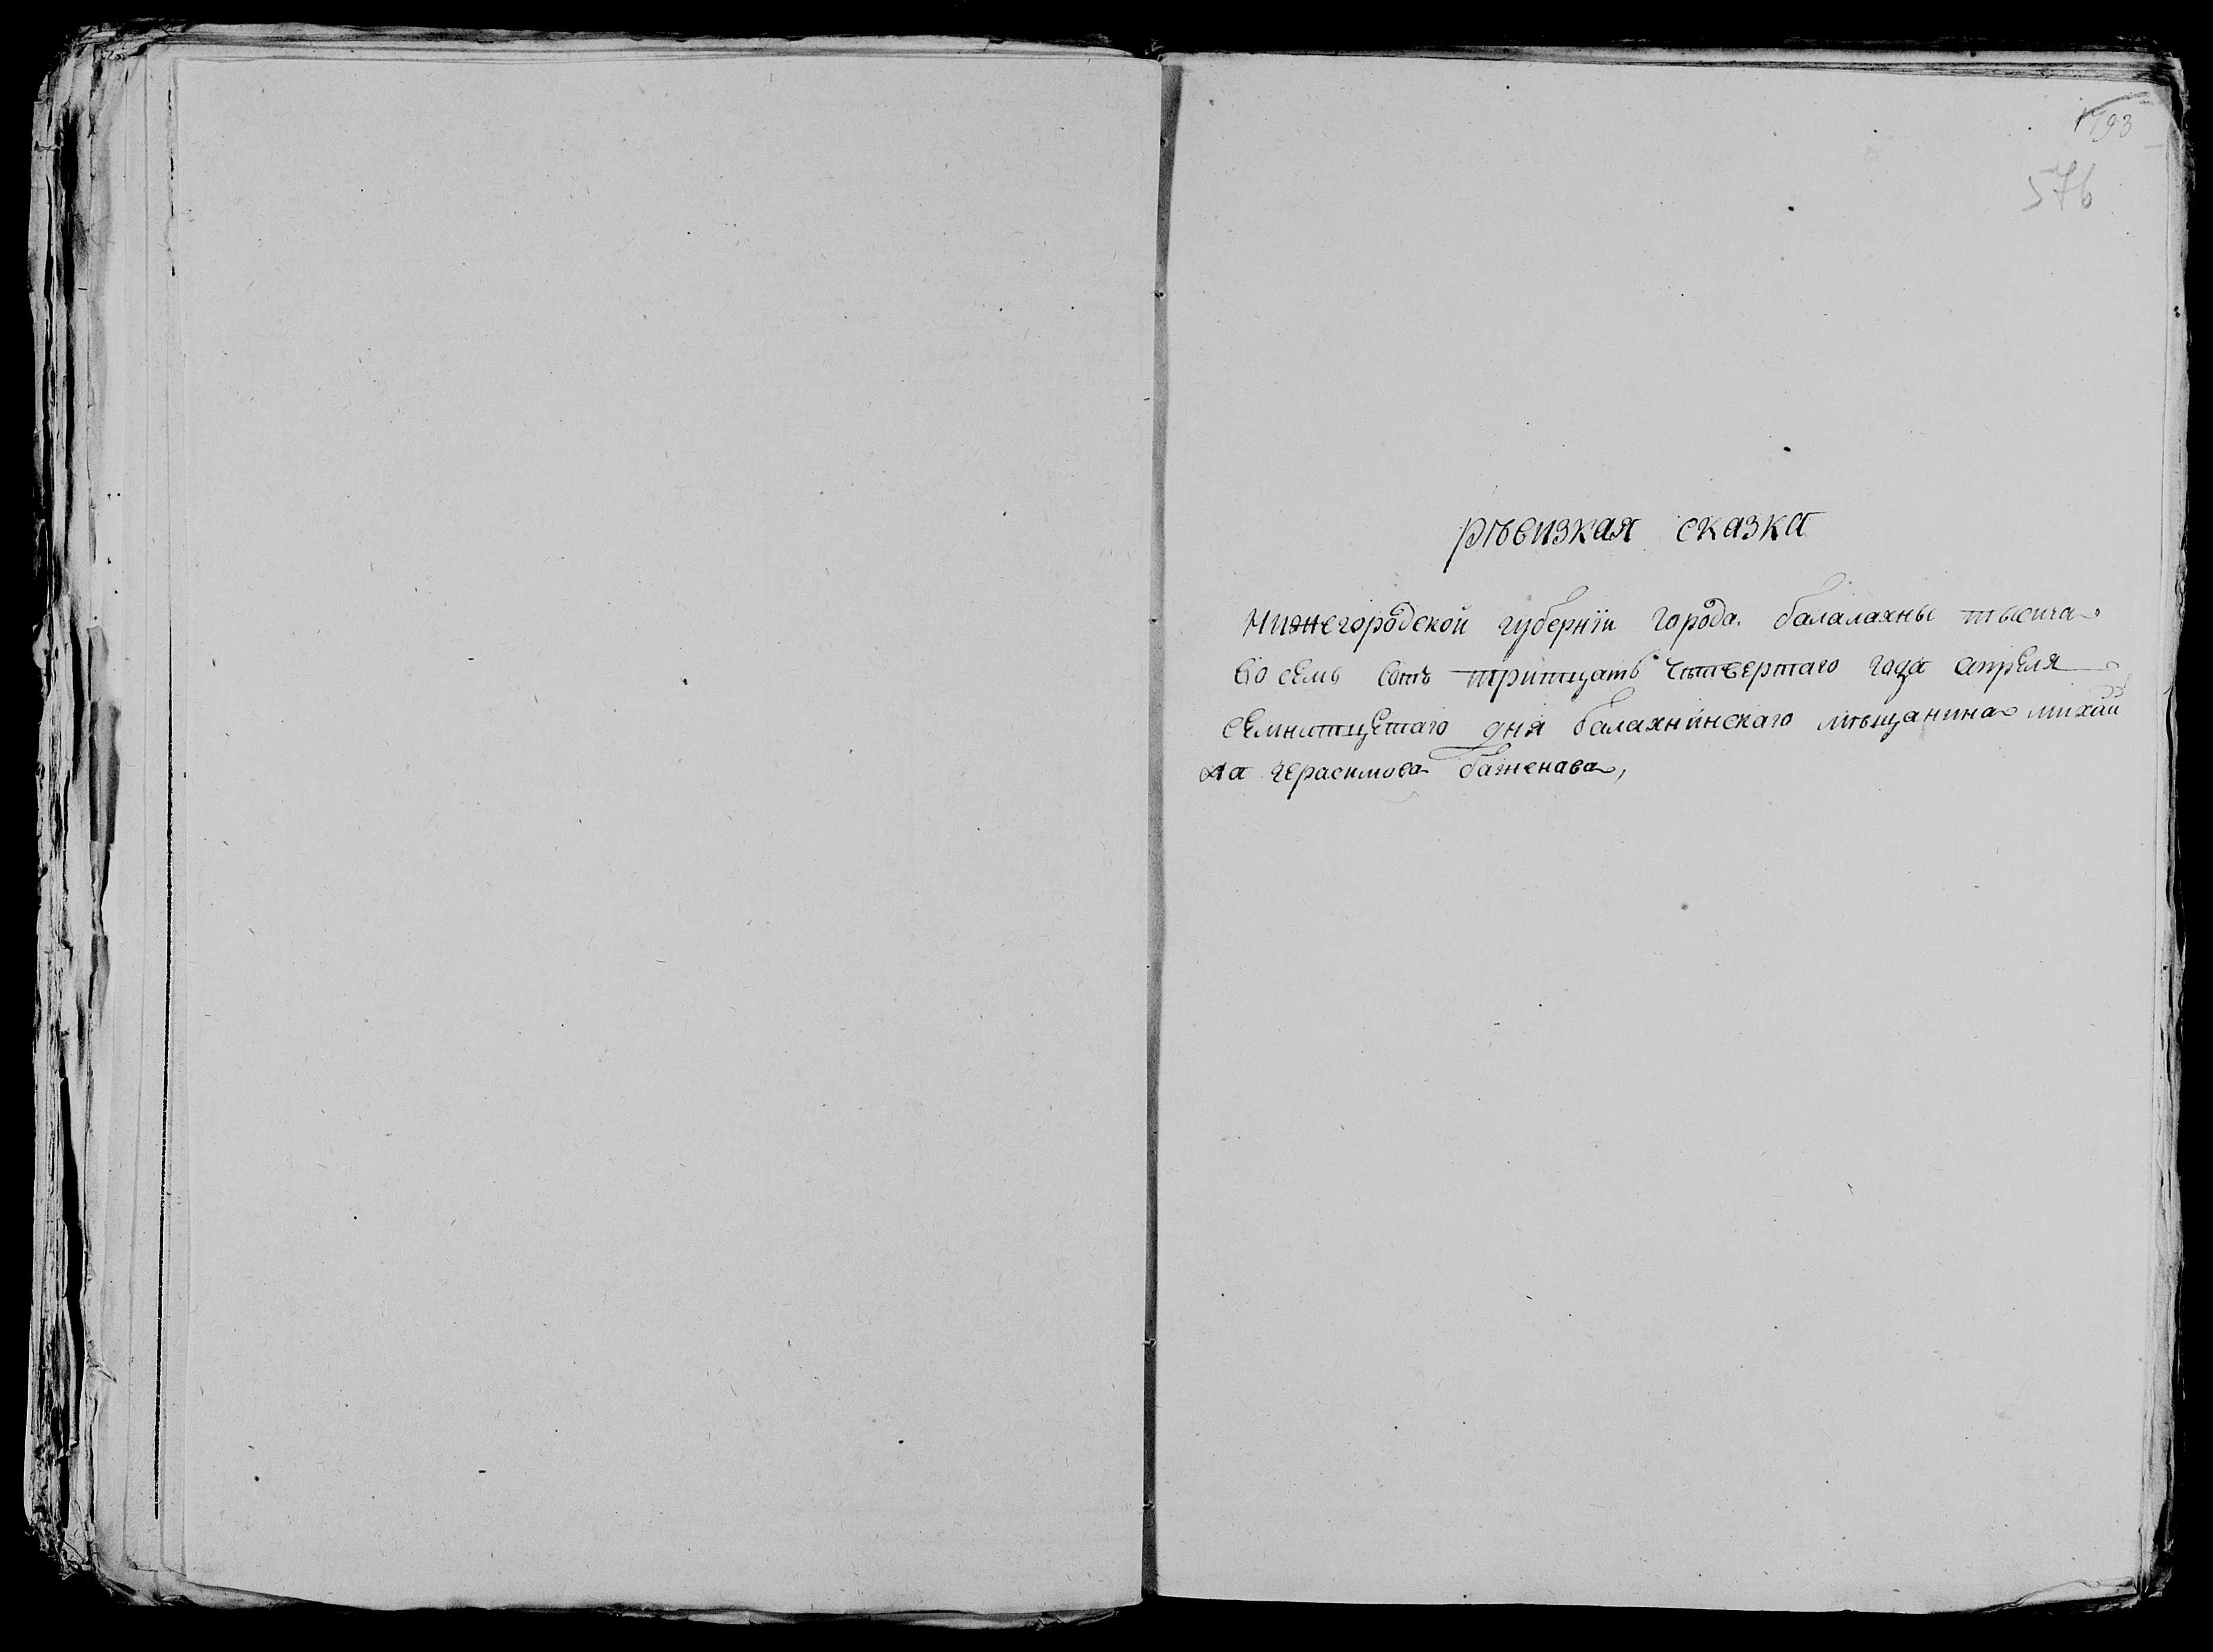 1793
576
рѣвизкая сказка
Нижегородской губернїи города. балалахны тысеча
восемь сотъ тритцать чѣтвертаго года апреля
семнатцетаго дня балахнинскаго мѣщанина михаи
ла герасимова баженава,